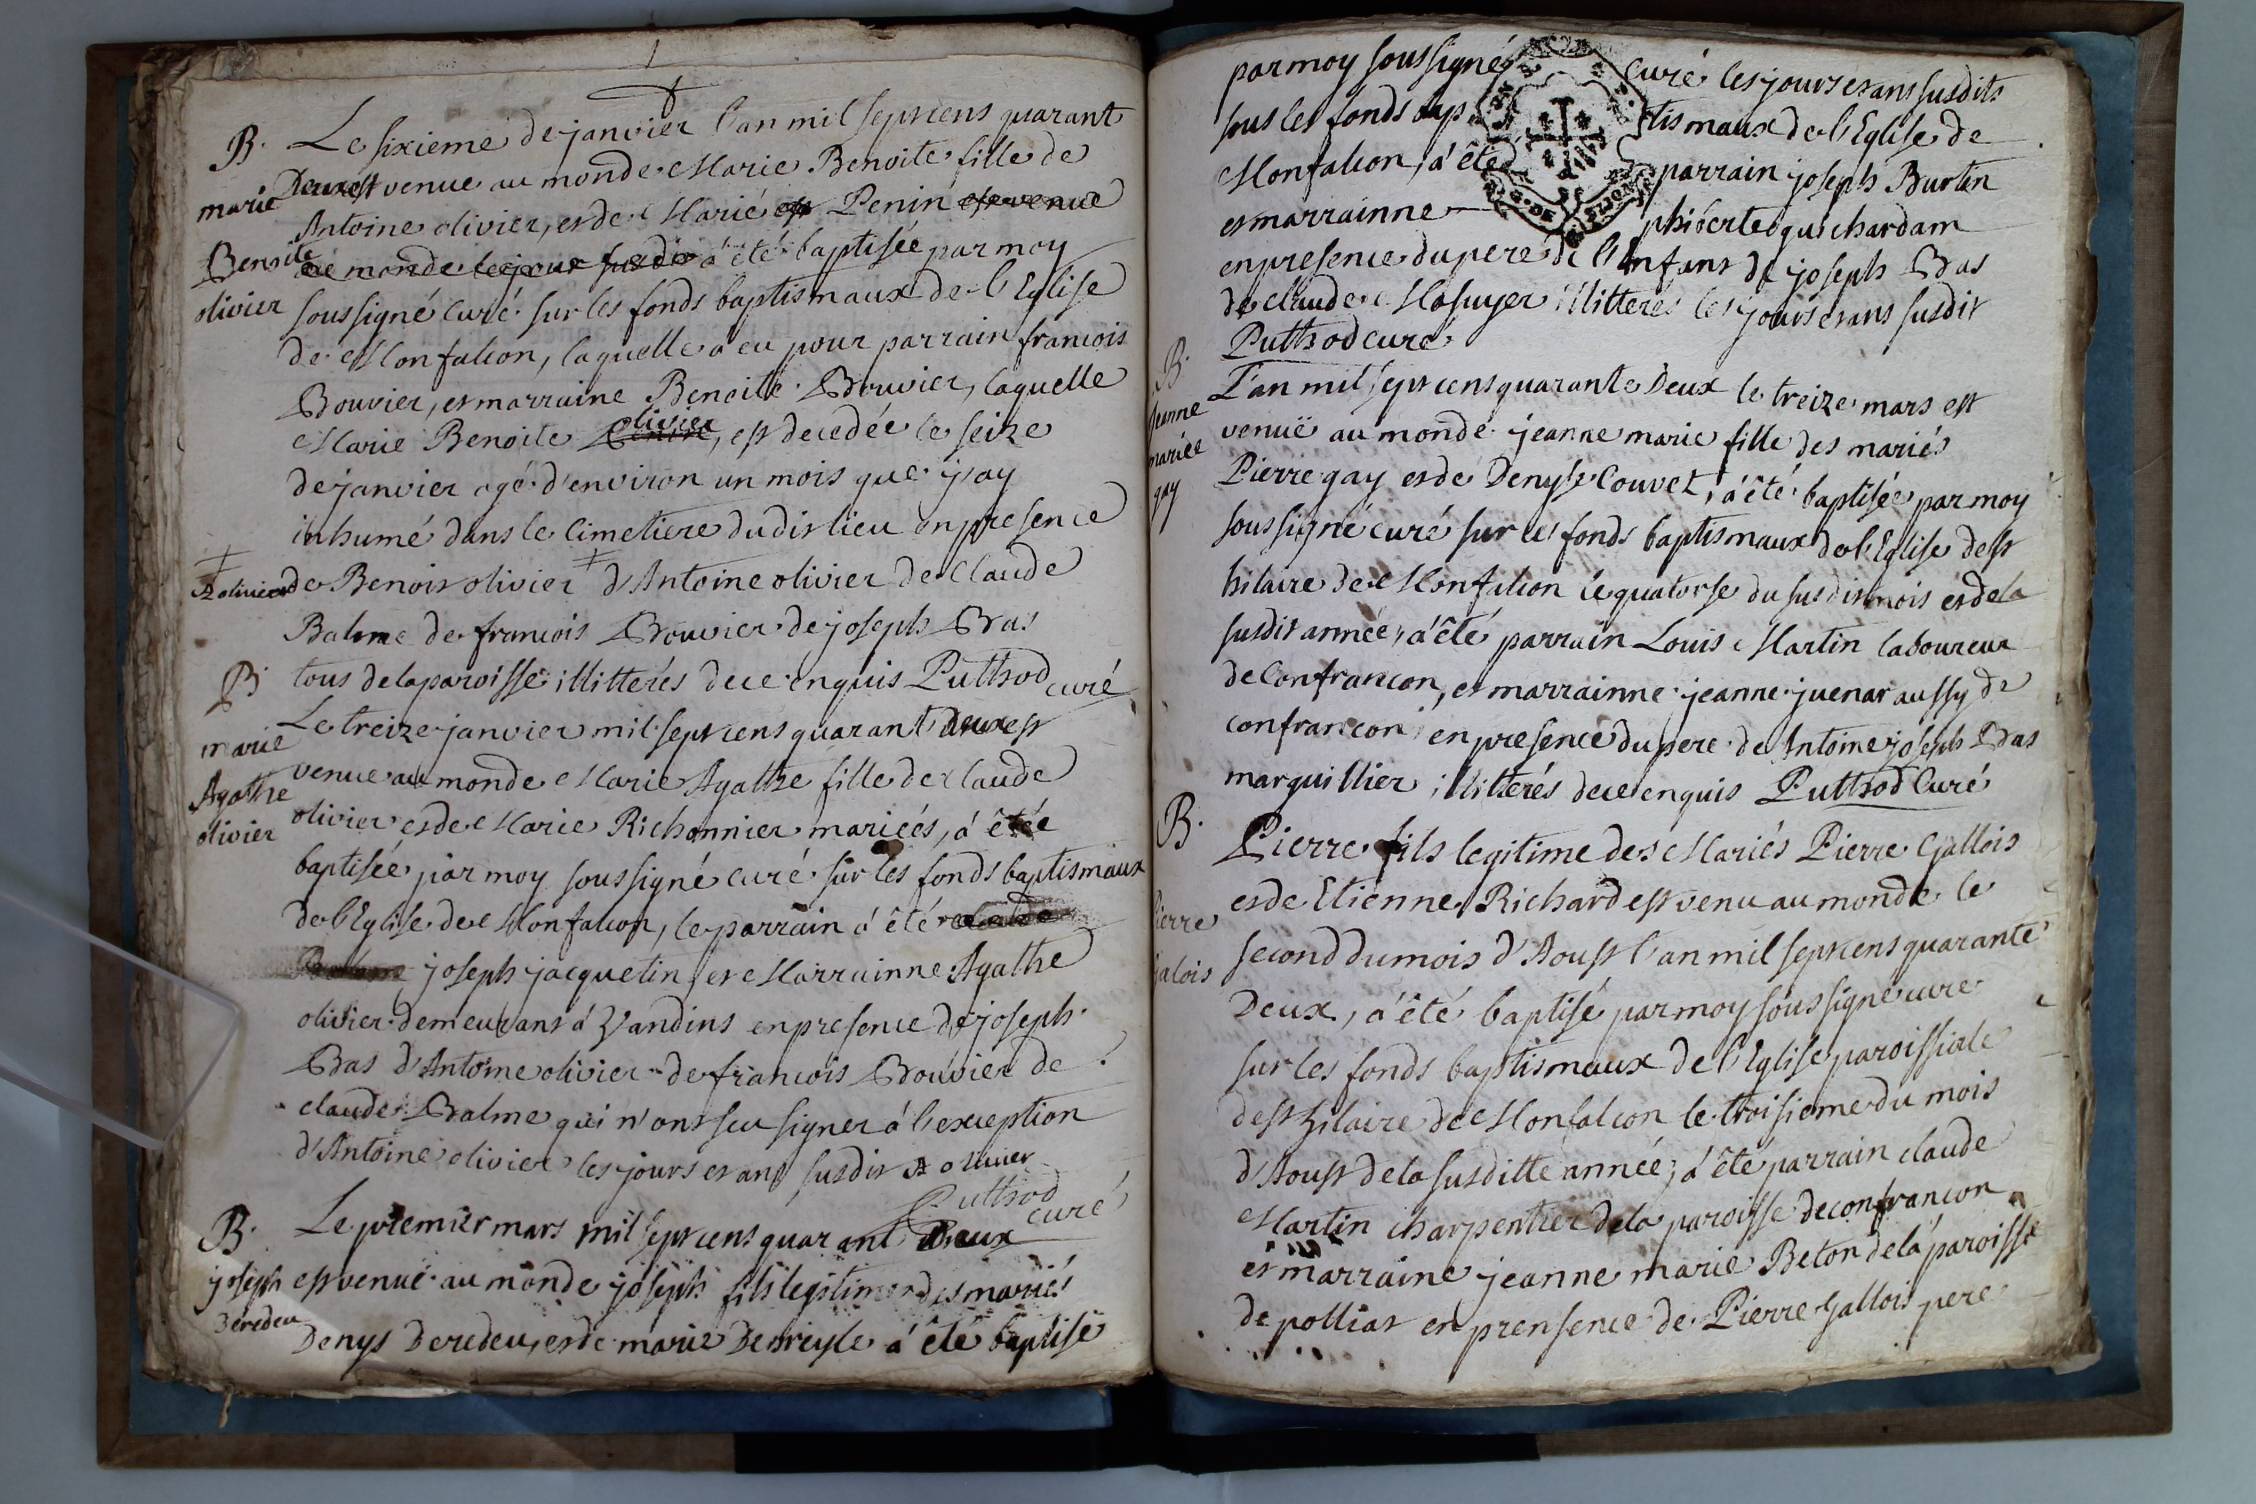 B. Le sixieme de janvier l'an mil sept cens quarant
marie Deux est venue au monde Marie Benoite fille de
Antoine olivier, et de Marie Penin et venue
Benoite au monde le jour susdit a été baptisée par moy
olivier soussigné curé sur les fonds baptismaux de l'Eglise
de Monfalcon, laquelle a eu pour parrain francois
Bouvier, et marraine Benoite Bouvier, laquelle
Marie Benoite olivier, est decedée le seize
de janvier agé d'environ un mois que j'ay
inhumé dans le Cimetiere dudit lieu en presence
A olivier de Benoit olivier d'Antoine olivier de Claude
Balme de francois Bouvier de joseph Bas
B. tous de la paroisse illitterés de ce enquis Puthod curé
Le treize janvier mil sept cens quarant deux est
marie venue au monde Marie Agathe fille de Claude
Agathe
olivier olivier et de Marie Richonnier mariés, a été
baptisée par moy soussigné curé sur les fonds baptismaux
de l'Eglise de Monfalcon, le parrain a été claude
joseph jacquetin et Marrainne Agathe
olivier demeurant à Vandins en presence de joseph
Bas d'Antoine olivier de francois Bouvier de
claude Balme qui n'ont seu signer à l'exception
d'Antoine olivier les jours et ans susdit A olivier
Puthod curé
B. Le premier mars mil sept cens quarant Deux
joseph est venuë au monde joseph fils legitime des mariés
Deredeu Denys Deredeu, et de marie a été baptisé
par moy soussigné curé les jours et ans susdits
sous les fonds baptismaux de l'Eglise de
Monfalcon, a été parrain joseph Burtin
et marrainne philberte guichardam
en presence du pere de l'Enfant de joseph Bas
de claude Masuyer illitterés les jours et ans susdit
Puthod curé
B. L'an mil sept cens quarante Deux le treize mars est
jeanne venuë au monde jeanne marie fille des mariés
mariee
gay Pierre gay et de Denyse Couvet, a été baptisée par moy
soussigné curé sur les fonds baptismaux de l'Eglise de st
hilaire de Monfalcon le quatorse du susdit mois et de la
susdit année, a été parrain Louis Martin laboureur
de Confrancon, et marrainne jeanne juenar aussy de
confrancon en presence du pere de Antoine joseph Bas
marguillier illitterés de ce enquis Puthod Curé
B. Pierre fils legitime des Mariés Pierre Gallois
et de Etienne Richard est venu au monde le
Pierre
galois second du mois d'Aoust l'an mil sept cens quarante
Deux, a été baptisé par moy soussigné curé
sur les fonds baptismaux de l'Eglise paroissiale
de st hilaire de Monfalcon le troisieme du mois
d'Aoust de la susditte année, a été parrain claude
Martin charpentier de la paroisse de confrancon
et marraine jeanne marie Beton de la paroisse
de polliat en prensence de Pierre Gallois pere